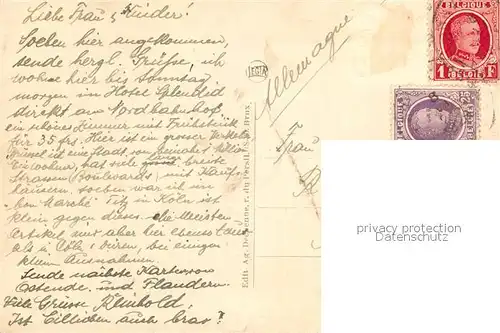 Liebe Frau & Kinder!
Soeben hier angekommen
sende herzl. Grüße, ich
wohne hier bis Sonntag
morgen in Hotel Splendid
direkt am Nordbahnhof,
ein schönes Zimmer mit Frühstück
für 35 frs. Hier ist ein grosser Verkehr
Brüssel ist eine Stadt von beinahe 1 Million
Einwohner, hat viele lange breite
Strassen (Boulevards) mit Kauf-
häusern, soeben war ich im
Bon Marché Tietz in Köln ist
klein gegen dieses. Die meisten
Artikel nur aber hier ebenso teuer
als in Cöln & Düren, bei einigen
kleinen Ausnahmen.
Sende nächste Karten von
Ostende und Flandern.
Viele Grüsse Reinhold.
Ist Cillichen auch brav?
LEGIA
Edit Ag. Decquenne, r. du Persil, Brux.
Allemagne
Frau
BELGIQUE
1 F
BELGIË
BELGIQUE
privacy protection
Datenschutz